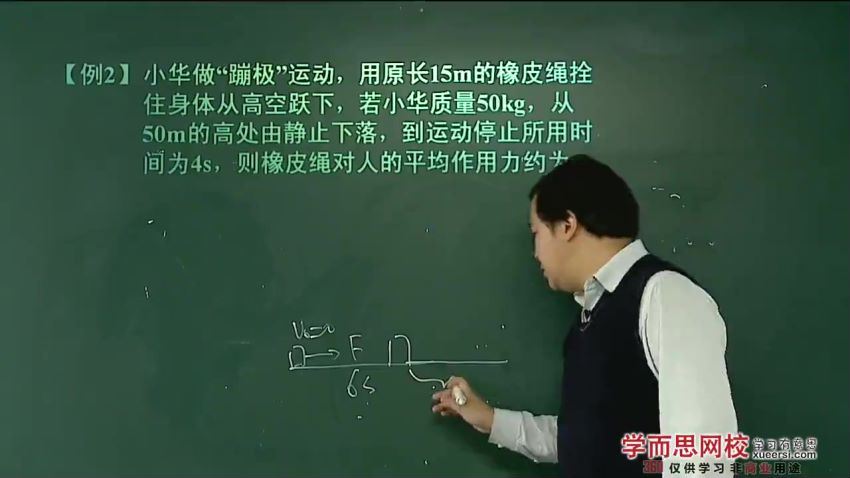 【例2】小华做“蹦极”运动，用原长15m的橡皮绳拴
住身体从高空跃下，若小华质量50kg，从
50m的高处由静止下落，到运动停止所用时
间为4s，则橡皮绳对人的平均作用力约为
V₀=0
F
6s
学而思网校
学习有意思
xueersi.com
360 仅供学习 非商业用途